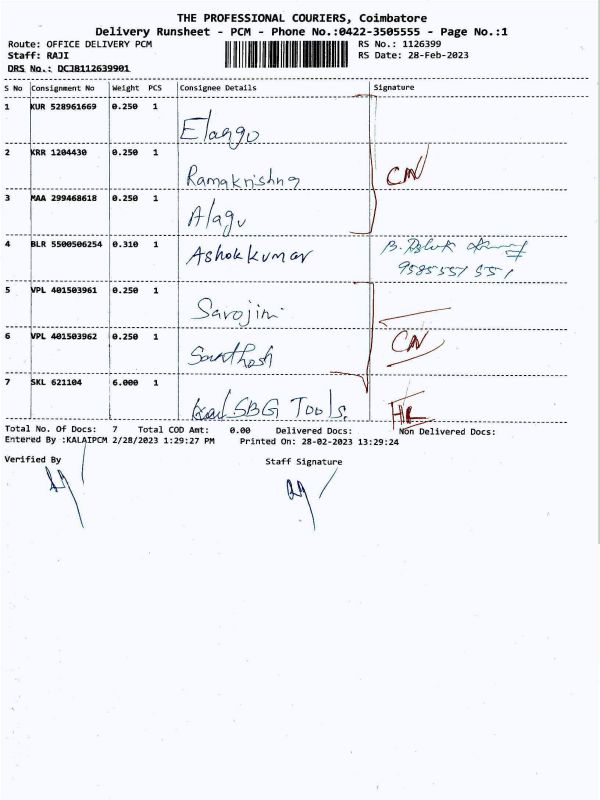 THE PROFESSIONAL COURIERS, Coimbatore
Delivery Runsheet - PCM - Phone No.:0422-3505555 - Page No.:1
Route: OFFICE DELIVERY PCM
RS No.: 1126399
Staff: RAJI
RS Date: 28-Feb-2023
DRS No.: DCJB112639901
S No Consignment No Weight PCS Consignee Details Signature
1 KUR 528961669 0.250 1
Elango
2 KRR 1204430 0.250 1
Ramakrishna
CN
3 MAA 299468618 0.250 1
Alagu
4 BLR 5500506254 0.310 1
Ashok kumar
9585557 551
5 VPL 401503961 0.250 1
Sarojini
6 VPL 401503962 0.250 1
Santhosh
CN
7 SKL 621104 6.000 1
SBG Tools.
Total No. Of Docs: 7 Total COD Amt: 0.00 Delivered Docs: Non Delivered Docs:
Entered By :KALAIPCM 2/28/2023 1:29:27 PM Printed On: 28-02-2023 13:29:24
Verified By
Staff Signature